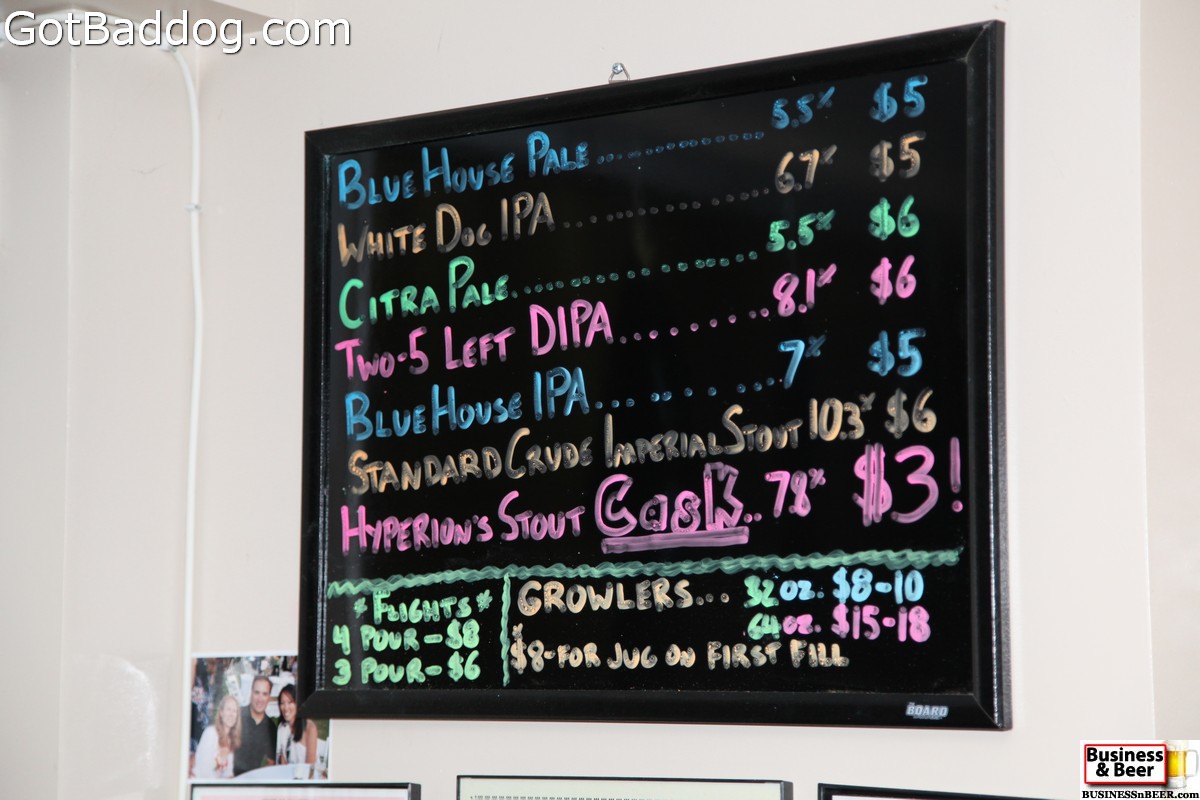 GotBaddog.com
BLUE HOUSE PALE............... 5.5% $5
WHITE DOG IPA............... 6.7% $5
CITRA PALE............... 5.5% $6
TWO-5 LEFT DIPA......... 8.1% $6
BLUE HOUSE IPA......... 7% $5
STANDARD CRUDE IMPERIAL STOUT 10.3% $6
HYPERION'S STOUT Cask.. 7.8% $3!
*FLIGHTS*
4 POUR - $8
3 POUR - $6
GROWLERS... 32 oz. $8-10
64 oz. $15-18
*$8-FOR JUG ON FIRST FILL
BOARD
Business
& Beer
BUSINESSnBEER.com